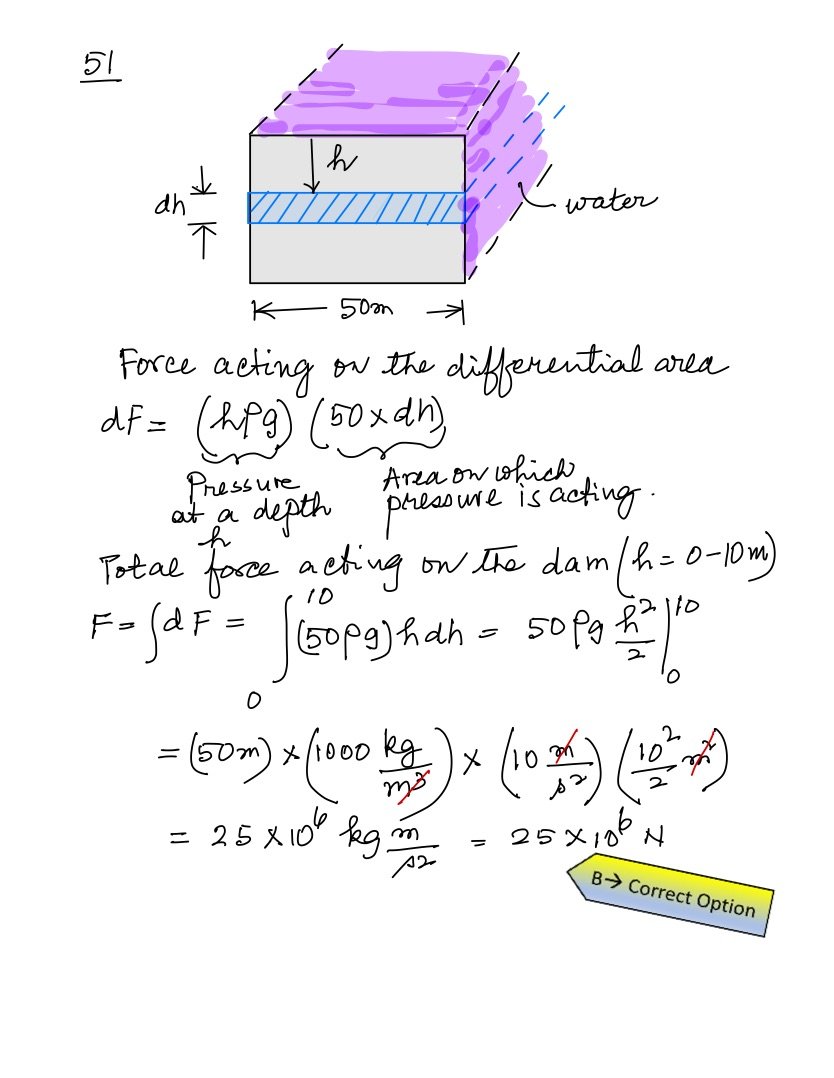 51
h
dh
water
50m
Force acting on the differential area
dF = (hρg) (50 × dh)
Pressure at a depth h
Area on which pressure is acting.
Total force acting on the dam (h = 0-10m)
F = ∫dF = ∫₀¹⁰ (50ρg) h dh = 50 ρg h²/2 |₀¹⁰
= (50m) × (1000 kg/m³) × (10 m/s²) (10²/2 m²)
= 25 × 10⁶ kg m/s² = 25 × 10⁶ N
B→ Correct Option